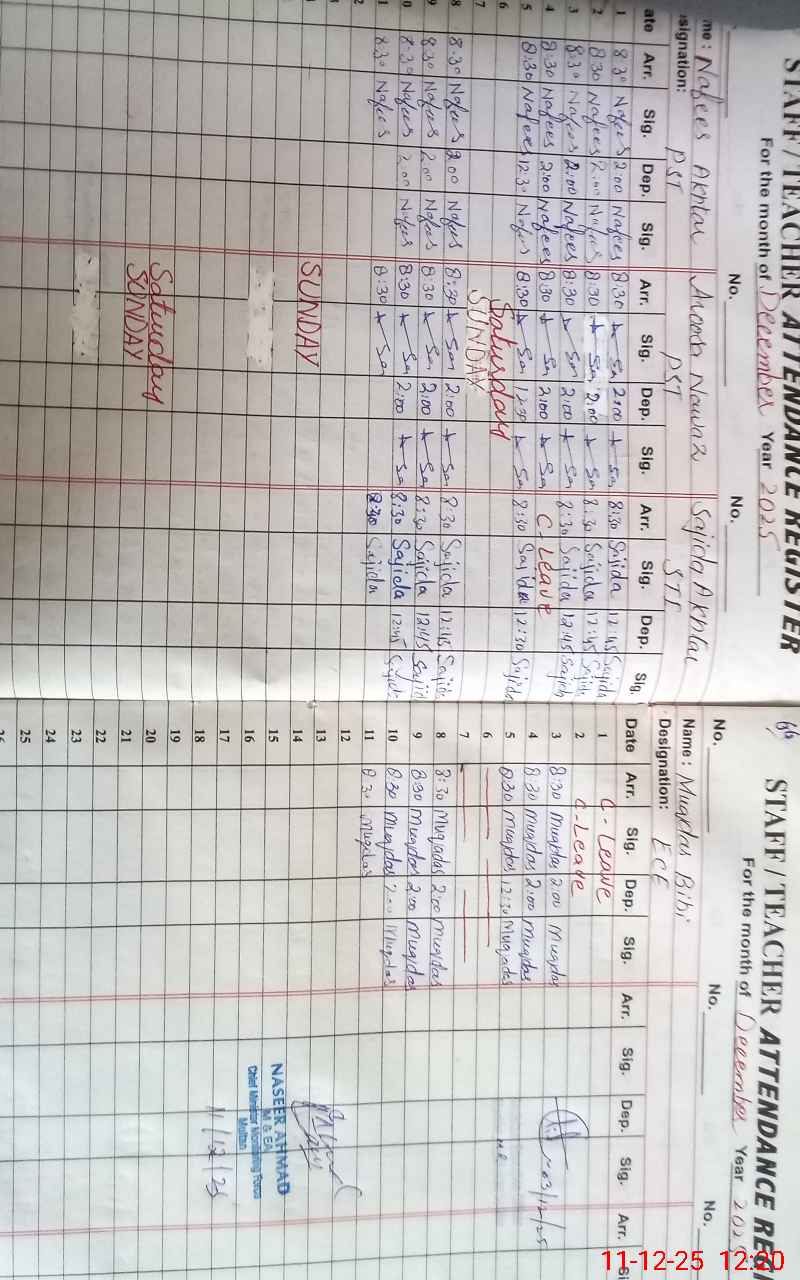 STAFF / TEACHER ATTENDANCE REGISTER
For the month of December Year 2025
No. No.
me: Nafees Akhtar Anoosh Nawaz Sajida Akhtar
signation: PST PST STI
ate Arr. Sig. Dep. Sig. Arr. Sig. Dep. Sig. Arr. Sig. Dep. Sig.
1 8:30 Nafees 2:00 Nafees 8:30 2:00 8:30 Sajida 12:45 Sajida
2 8:30 Nafees 2:00 Nafees 8:30 2:00 8:30 Sajida 12:45 Sajida
3 8:30 Nafees 2:00 Nafees 8:30 2:00 8:30 Sajida 12:45 Sajida
4 8:30 Nafees 2:00 Nafees 8:30 2:00 C-Leave
5 8:30 Nafees 12:30 Nafees 8:30 12:30 8:30 Sajida 12:30 Sajida
6 Saturday
7 SUNDAY
8 8:30 Nafees 2:00 Nafees 8:30 2:00 8:30 Sajida 12:45 Sajida
9 8:30 Nafees 2:00 Nafees 8:30 2:00 8:30 Sajida 12:45 Sajid
0 8:30 Nafees 2:00 Nafees 8:30 2:00 8:30 Sajida 12:45 Sajida
1 8:30 Nafees 8:30 8:30 Sajida
2
SUNDAY
Saturday
SUNDAY
66
STAFF / TEACHER ATTENDANCE REG
For the month of December Year 202
No. No. No.
Name: Muqadas Bibi
Designation: ECE
Date Arr. Sig. Dep. Sig. Arr. Sig. Dep. Sig. Arr. Si
1 C-Leave
2 C-Leave
3 8:30 Muqdas 2:00 Muqdas
4 8:30 Muqdas 2:00 Muqdas
5 8:30 Muqdas 12:30 Muqadas
6
7
8 8:30 Muqadas 2:00 Muqadas
9 8:30 Muqdas 2:00 Muqdas
10 8:30 Muqdas 2:00 Muqdas
11 8:30 Muqdas
12
13
14
15
16
17
18
19
20
21
22
23
24
25
26
03/12/25
NASEER AHMAD
M & EA
Chief Minister Monitoring Force
Multan
11/12/25
11-12-25 12:20